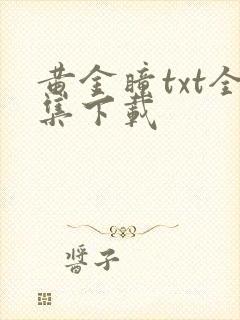 黄金瞳txt全
集下载
酱子